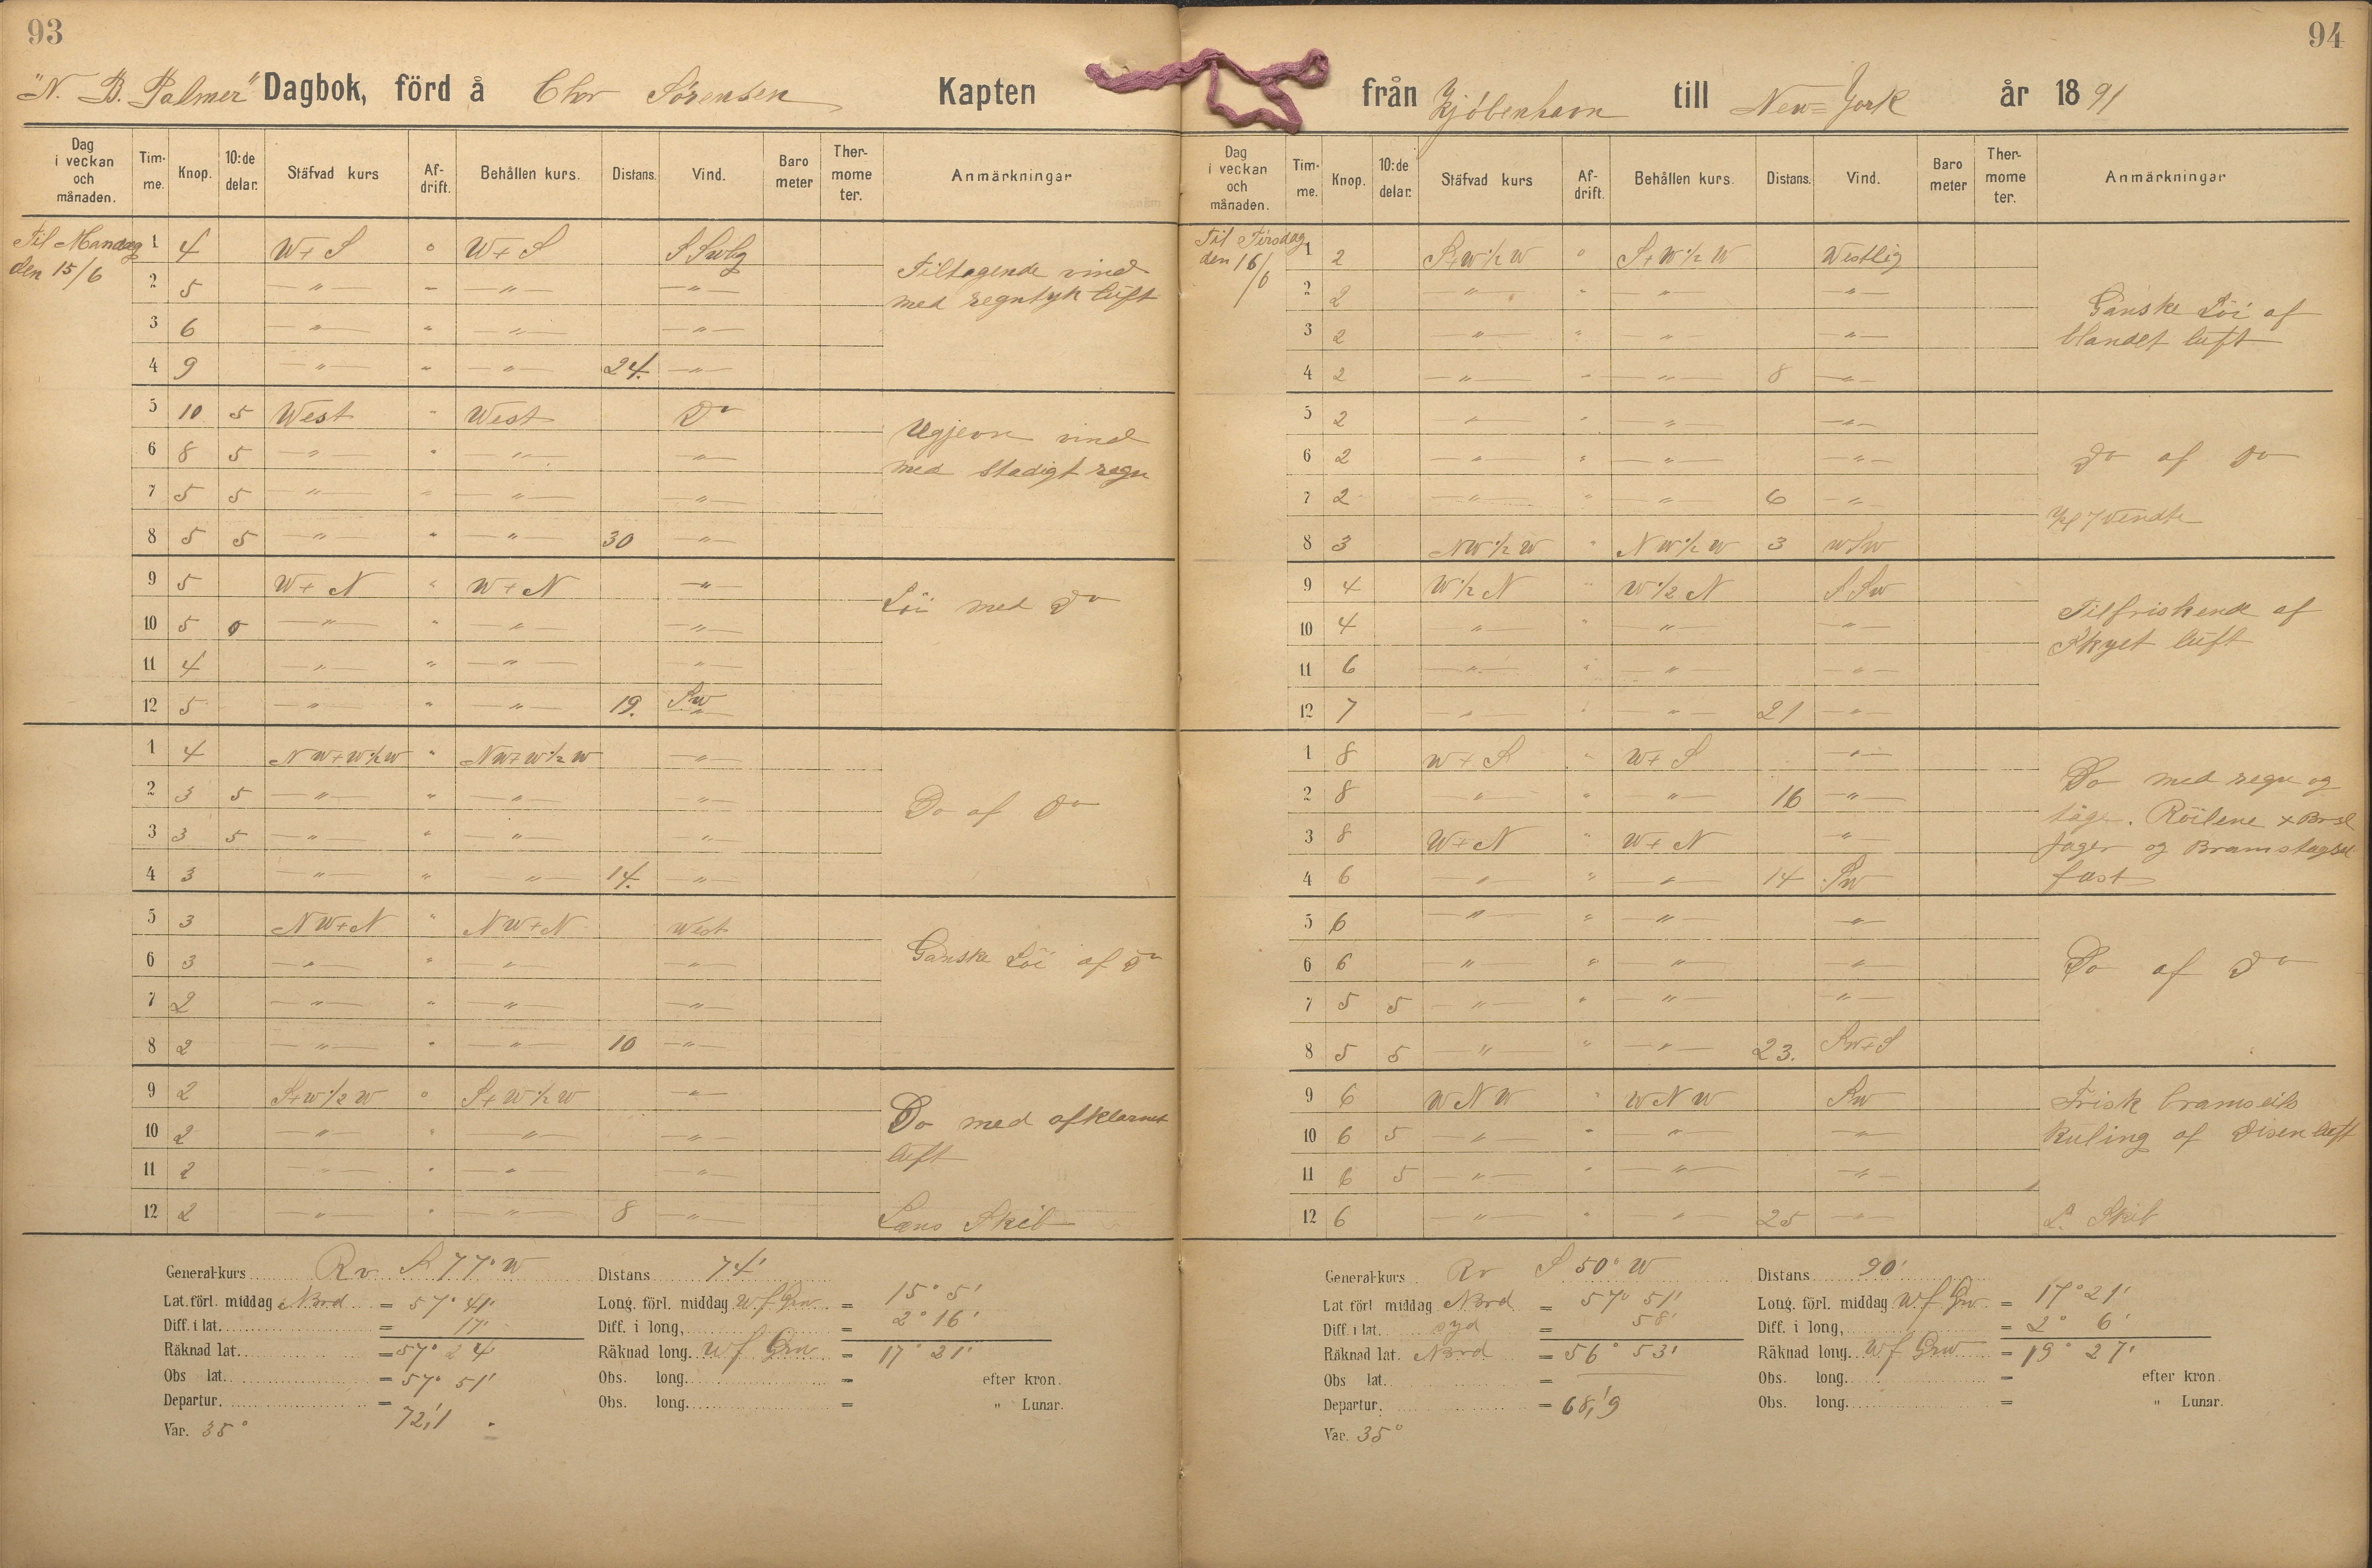 93
"N. B. Palmer" Dagbok, förd å Chr Sörensen Kapten
Dag i veckan och månaden. Tim-me. Knop. 10:de delar. Stäfvad kurs Af-drift. Behållen kurs. Distans. Vind. Baro meter Ther-mome ter. Anmärkningar
Til Mandag 1 4 W+S o W+S SSwlig
den 15/6 2 5 —"— " —"— —"— Tiltagende vind
3 6 —"— " —"— —"— med regntyk luft
4 9 —"— " —"— 24. —"—
5 10 5 West " West Do
6 8 5 —"— " —"— —"— Ugjevn vind
7 5 5 —"— " —"— —"— med stadigt regn
8 5 5 —"— " —"— 30 —"—
9 5 W+N " W+N —"— Löi med Do
10 5 0 —"— " —"— —"—
11 4 —"— " —"— —"—
12 5 —"— " —"— 19. Sw
1 4 NW+W½W " NW+W½W —"—
2 3 5 —"— " —"— —"— Do af Do
3 3 5 —"— " —"— —"—
4 3 —"— " —"— 14. —"—
5 3 NW+N " NW+N West
6 3 —"— " —"— —"— Ganske Löi af Do
7 2 —"— " —"— —"—
8 2 —"— " —"— 10 —"—
9 2 S+W½W o S+W½W —"— Do med afklarnet
10 2 —"— " —"— —"— luft
11 2 —"— " —"— —"—
12 2 —"— " —"— 8 —"— Læns Skib
General-kurs Rv S 77° W Distans 74'
Lat. förl. middag Nord = 57° 41' Long. förl. middag W f Grw = 15° 5'
Diff. i lat. = 17' Diff. i long, = 2° 16'
Räknad lat. = 57° 24 Räknad long. W f Grw = 17° 21'
Obs lat. = 57° 51' Obs. long. = efter kron.
Departur. = 72,1 Obs. long. = " Lunar.
Var. 35°
94
från Kjöbenhavn till New=York år 1891
Dag i veckan och månaden. Tim-me. Knop. 10:de delar. Stäfvad kurs Af-drift. Behållen kurs. Distans. Vind. Baro meter Ther-mome ter. Anmärkningar
Til Tirsdag 1 2 S+W½W o S+W½W Westlig
den 16/6 2 2 —"— " —"— —"— Ganske Löi af
3 2 —"— " —"— —"— blandet luft
4 2 —"— " —"— 8 —"—
5 2 —"— " —"— —"—
6 2 —"— " —"— —"— Do af Do
7 2 —"— " —"— 6 —"— Kl 7 vendte
8 3 NW½W " NW½W 3 WSW
9 4 W½N " W½N SSw
10 4 —"— " —"— —"— Tilfriskende af
11 6 —"— " —"— —"— Skyet luft
12 7 —"— " —"— 21 —"—
1 8 W+S " W+S —"— Do med regn og
2 8 —"— " —"— 16 —"— tåge. Röilene
3 8 W+N " W+N —"— Jager og Bramstagseil
4 6 —"— " —"— 14 Sw fast
5 6 —"— " —"— —"—
6 6 —"— " —"— —"— Do af Do
7 5 5 —"— " —"— —"—
8 5 5 —"— " —"— 23. Sw+S
9 6 WNW " WNW Sw Frisk bramseils
10 6 5 —"— " —"— —"— Kuling af Disen luft
11 6 5 —"— " —"— —"—
12 6 —"— " —"— 25 —"— L. Skib
General-kurs Rv S 50° W Distans 90'
Lat. förl middag Nord = 57° 51' Long. förl. middag W f Grw = 17° 21'
Diff. i lat. syd = 58' Diff. i long, = 2° 6'
Räknad lat. Nord = 56° 53' Räknad long. W f Grw = 19° 27'
Obs lat. = Obs. long. = efter kron.
Departur. = 68,9 Obs. long. = " Lunar.
Var. 35°